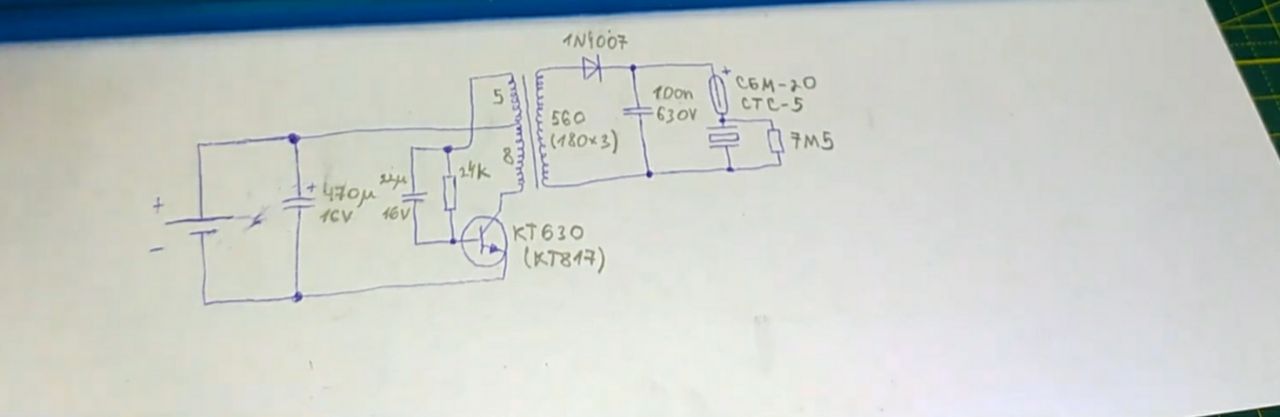 1N4007
+
СБМ-20
СТС-5
100n
630V
7M5
5
560
(180×3)
8
24K
22µ
16V
+
470µ
16V
+
−
KT630
(KT817)